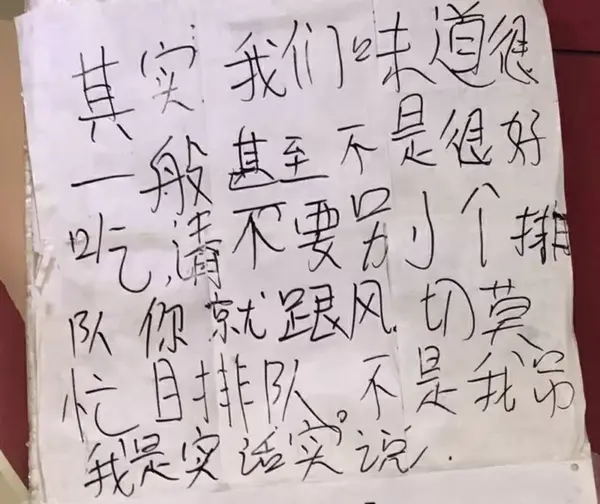 其实 我们味道很
一般 甚至不是很好
吃,请不要别个排
队你就跟风.切莫
忙目排队.不是我吊
我是实话实说.